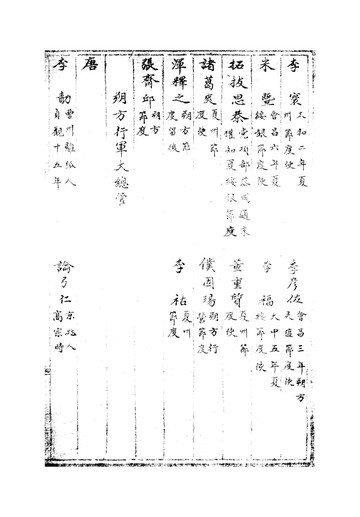 李寰 太和二年夏州節度使 李彥佐 會昌三年朔方灵塩節度使
米暨 會昌六年夏綏銀節度使 李福 大中五年夏綏節度使
拓拔思恭 党項部落咸通末權知夏綏銀節度 董重質 夏州節度使
諸葛爽 夏州節度使 僕固瑒 朔方行營節度
渾釋之 朔方節度留後 李祐 夏州節度
張齊邱 朔方節度
朔方行軍大總管
唐
李勣 曹州離狐人貞觀十五年 論弓仁 京兆人高宗時